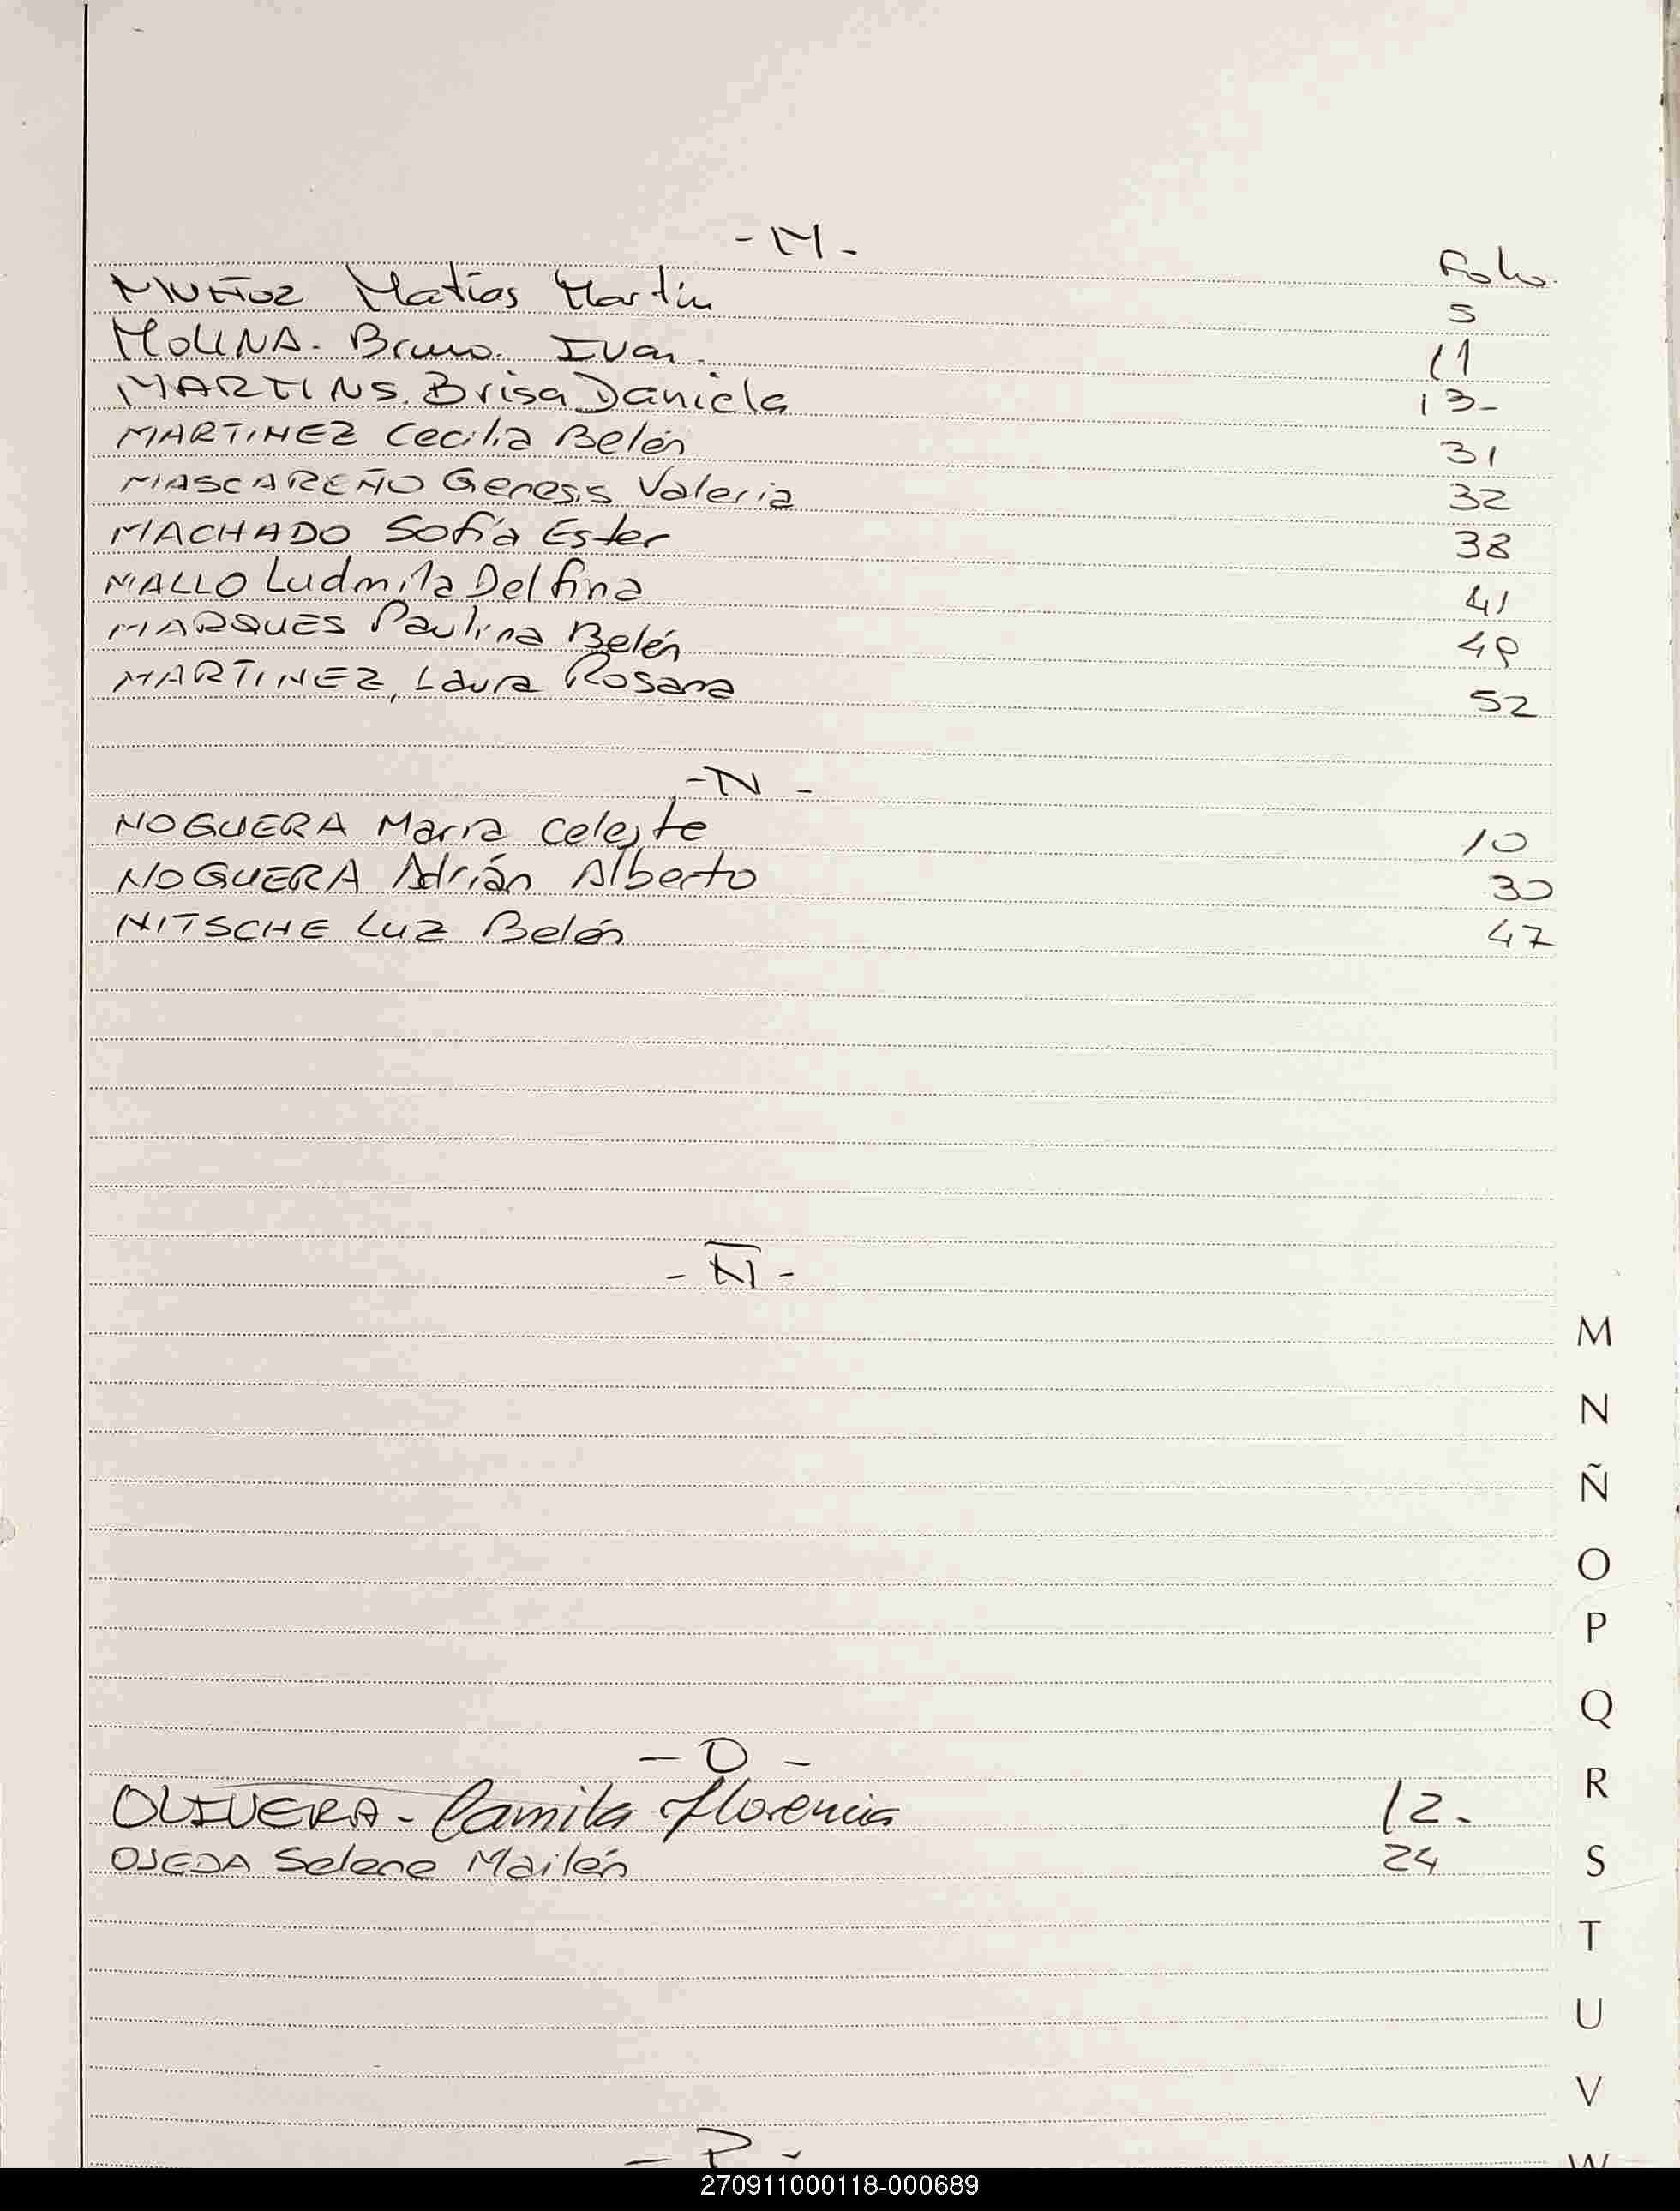 - M -
Folio.
MUÑOZ Matías Martin 5
MOLINA. Bruno. Ivan. 11
MARTINS. Brisa Daniela 13-
MARTINEZ Cecilia Belén 31
MASCAREÑO Genesis Valeria 32
MACHADO Sofía Ester 38
MALLO Ludmila Delfina 41
MARQUES Paulina Belén
MARTINEZ, Laura Rosana 52
- N -
NOGUERA María Celeste 10
NOGUERA Adrián Alberto 30
NITSCHE Luz Belén 47
- Ñ -
M
N
Ñ
O
P
Q
- O -
R
OLIVERA - Camila Florencia 12.
OJEDA Selene Mailén 24
S
T
U
V
- P -
W
270911000118-000689